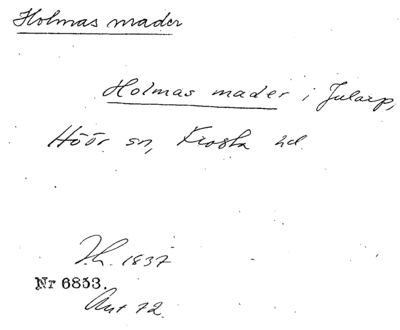 Holmas mader
Holmas mader i Jularp,
Höör sn, Frosta hd.
1837
Nr 6853.
Ant 72.